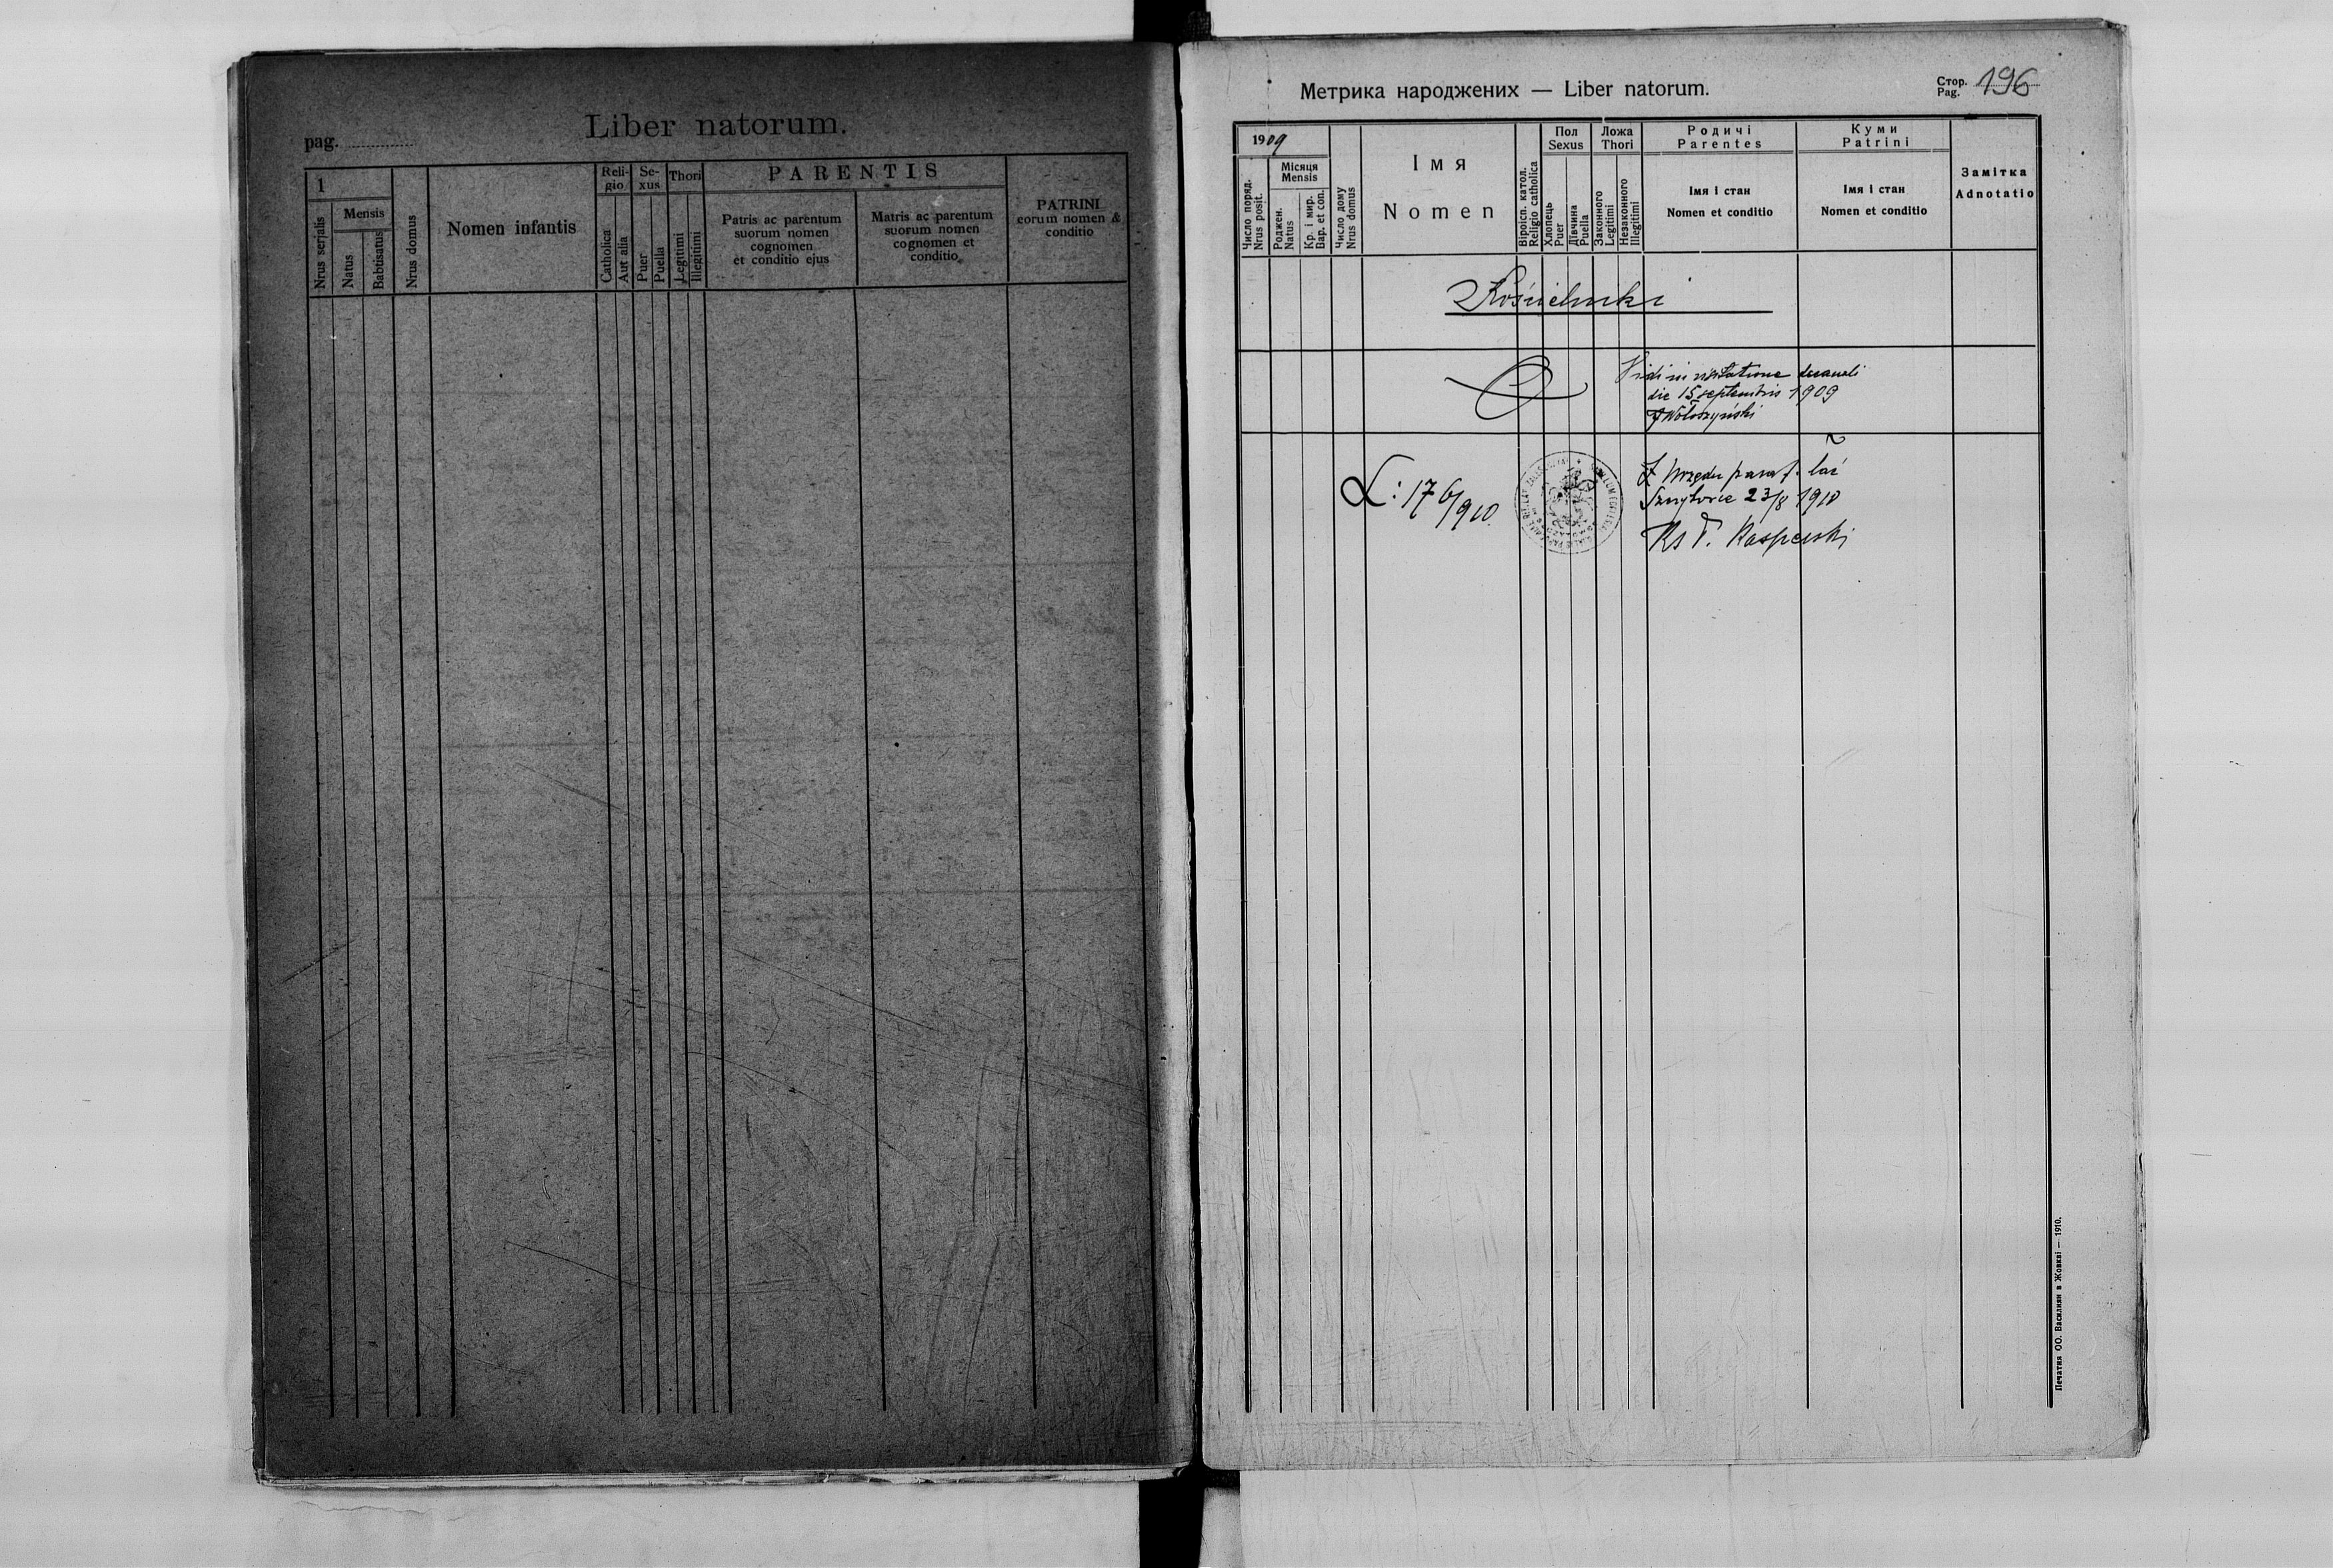 Liber natorum.
pag.
1
Mensis
Nrus serjalis
Natus
Babtisatus
Nrus domus
Nomen infantis
Reli-
gio
Catholica
Aut alia
Se-
xus
Puer
Puella
Thori
Legitimi
Illegitimi
PARENTIS
Patris ac parentum
suorum nomen
cognomen
et conditio ejus
Matris ac parentum
suorum nomen
cognomen et
conditio
PATRINI
eorum nomen &
conditio
Метрика народжених — Liber natorum.
Стор.
Pag. 196
1909
Число поряд.
Nrus posit.
Місяця
Mensis
Роджен.
Natus
Кр. і мир.
Bap. et con.
Число дому
Nrus domus
Імя
Nomen
Віроісп. катол.
Religio catholica
Пол
Sexus
Хлопець
Puer
Дївчина
Puella
Ложа
Thori
Законного
Legitimi
Незаконного
Illegitimi
Родичі
Parentes
Імя і стан
Nomen et conditio
Куми
Patrini
Імя і стан
Nomen et conditio
Замітка
Adnotatio
Kośnielniki
Vidi in visitatione decanali
die 15 septembris 1909
JWołoszyński
L: 176/910
Z Urzędu paraf. łać
23/8 1910
Ks T. Kasperski
Печатня ОО. Василиян в Жовкві — 1910.